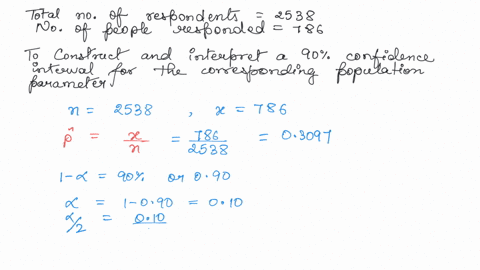 Total no. of respondents = 2538
No. of people responded = 786
To Construct and interpret a 90% confidence
interval for the corresponding population
parameter.
n = 2538 , x = 786
p̂ = x/n = 786/2538 = 0.3097
1-α = 90% or 0.90
α = 1-0.90 = 0.10
α/2 = 0.10